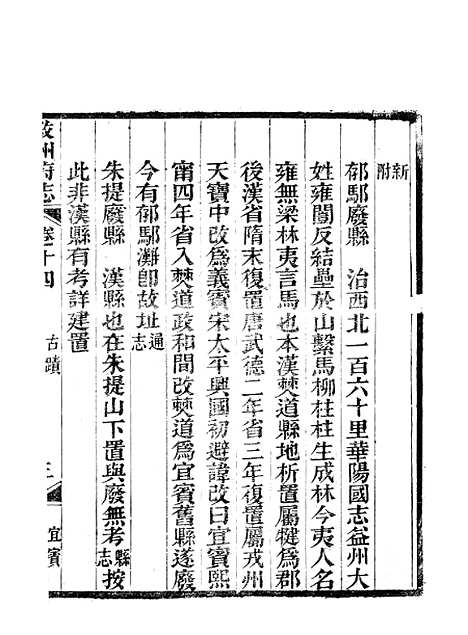 新附
郁鄢廢縣　治西北一百六十里華陽國志益州大
姓雍闓反結壘於山繫馬柳柱柱生成林今夷人名
雍無梁林夷言馬也本漢僰道縣地析置屬犍爲郡
後漢省隋末復置唐武德二年省三年復置屬戎州
天寶中改爲義賓宋太平興國初避諱改曰宜賓熙
甯四年省入僰道政和間改僰道爲宜賓舊縣遂廢
今有郁鄢灘卽故址通志
朱提廢縣　漢縣也在朱提山下置與廢無考縣志按
此非漢縣有考詳建置
敘州府志　卷十四　古蹟　三　宜賓